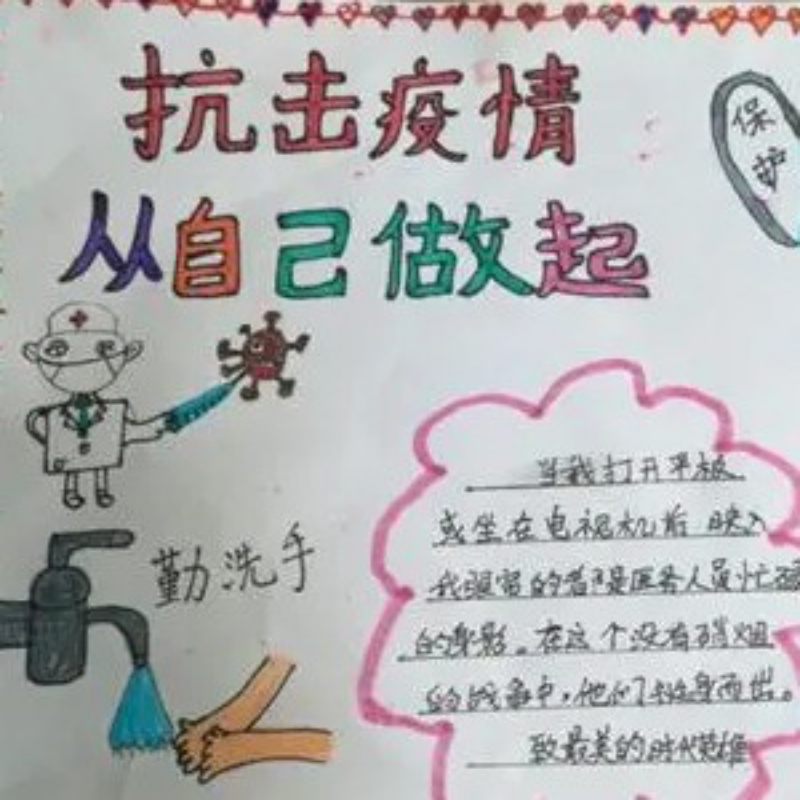 抗击疫情
保护
从自己做起
勤洗手
当我打开平板
或坐在电视机前 映入
我眼帘的都是医务人员忙碌
的身影。在这个没有硝烟
的战争中,他们挺身而出。
致最美的时代英雄